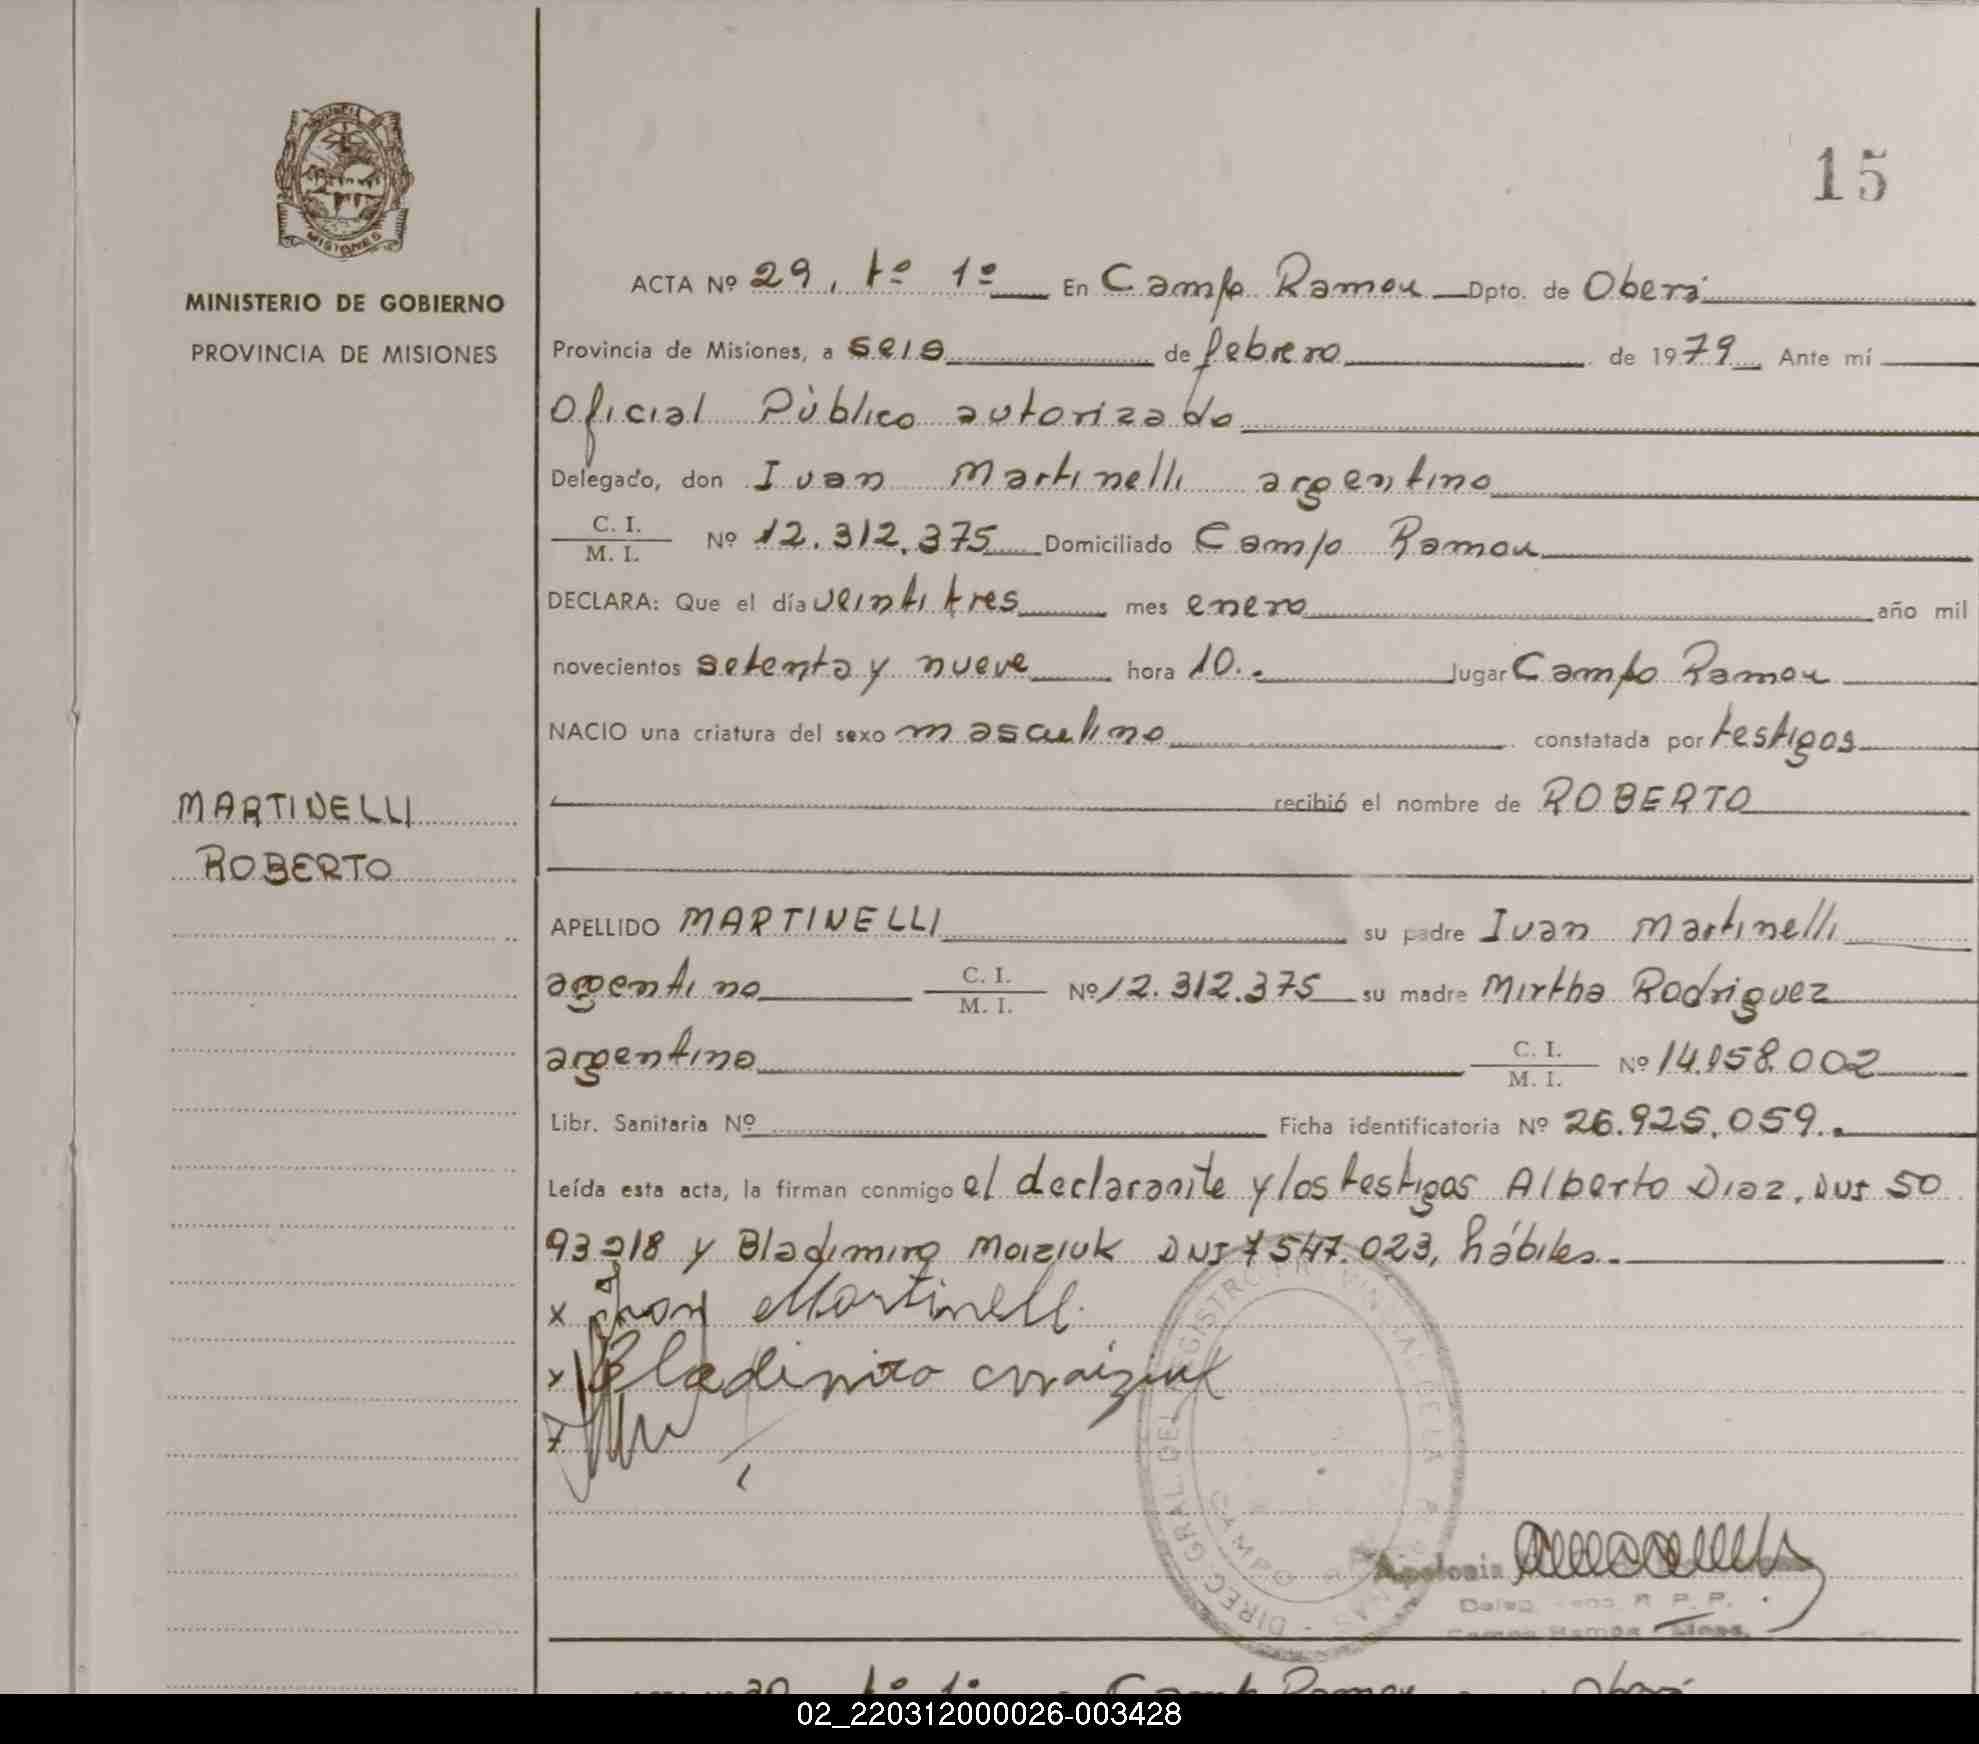 15
MISIONES
MINISTERIO DE GOBIERNO
PROVINCIA DE MISIONES
MARTINELLI
ROBERTO
ACTA Nº 29, tº 1º En Campo Ramon Dpto. de Oberá
Provincia de Misiones, a seis de febrero de 1979 Ante mí
Oficial Público autorizado
Delegado, don Ivan Martinelli argentino
C. I.
M. I. Nº 12.312.375 Domiciliado Campo Ramon
DECLARA: Que el día veintitres mes enero año mil
novecientos setenta y nueve hora 10.. lugar Campo Ramon
NACIO una criatura del sexo masculino constatada por testigos
recibió el nombre de ROBERTO
APELLIDO MARTINELLI su padre Ivan Martinelli
argentino C. I.
M. I. Nº 12.312.375 su madre Mirtha Rodriguez
argentino C. I.
M. I. Nº 14.958.002
Libr. Sanitaria Nº Ficha identificatoria Nº 26.925.059..
Leída esta acta, la firman conmigo el declarante y los testigos Alberto Diaz, DNI 50
93218 y Bladimiro Maiziuk DNI 7547.023, hábiles..
x Ivan Martinelli
x Bladimiro Maiziuk
DIREC. GRAL. DEL REGISTRO PROVINCIAL DE LA
CAMPO
Apolonia
R P. P.
Campo Ramon
Campo Ramon Oberá
02_220312000026-003428